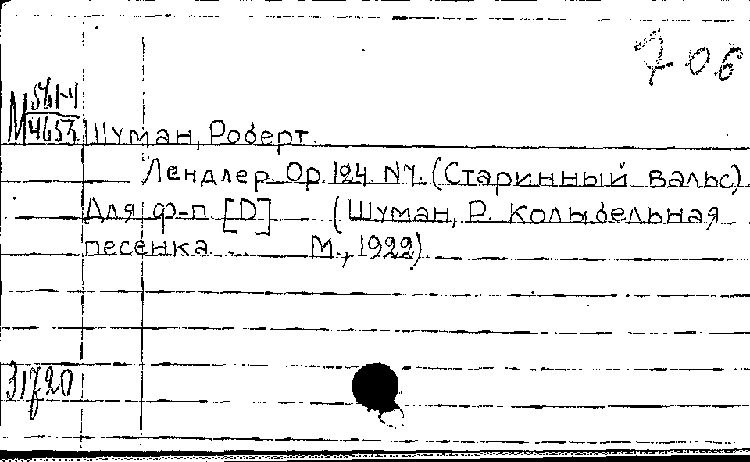 706
М 561-4
4653
Шуман, Роберт.
Лендлер Op. 124 N7. (Старинный вальс)
Для ф-п [D] (Шуман, Р. Колыбельная
песенка ... М., 1922).
31720